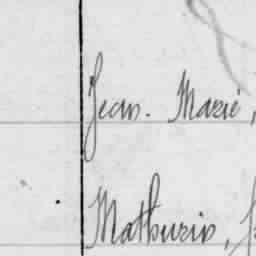 Jean. Marie,
Mathurin,